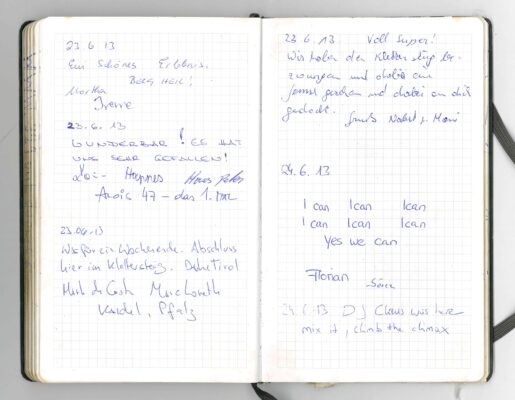 23.6.13
Ein schönes Erlebnis.
BERG HEIL!
Martha
Irene
23.6.13
WUNDERBAR! ES HAT
UNS SEHR GEFALLEN!
Hannes Hans Peter
47 - das 1. Mal
23.06.13
Was für ein Wochenende. Abschluss
hier im Klettersteig. Danke Tirol
Kandel, Pfalz
23.6.13 Voll Super!
Wir haben den Klettersteig be-
zwungen und dabei
und dabei an dich
gedacht.
Gruß
24.6.13
I can I can I can
I can I can I can
Yes we can
Florian
24.6.13 DJ Claus was here
mix it, climb the climax